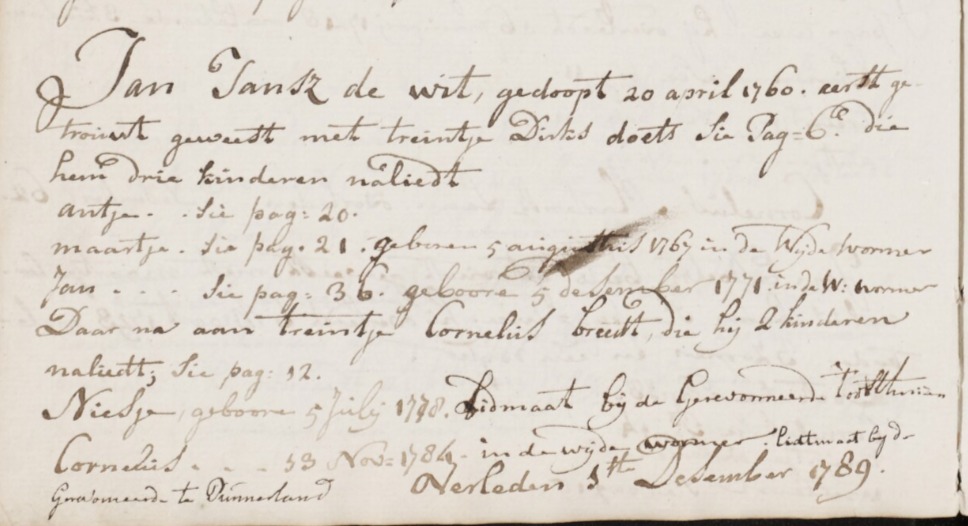 Jan Jansz de wit, gedoopt 20 april 1760. eerst ge-
trouwt geweest met treintje Dirks doets Sie Pag=6. die
hem drie kinderen naliedt
antje - - Sie pag: 20.
maartje. Sie pag. 21. geboren 5 augustus 1767 in de Wijde wormer
Jan - - - Sie pag: 36. geboore 5 desember 1771. in de W: wormer
Daar na aan treintje Cornelis breedt, die hij 2 kinderen
naliedt; Sie pag: 12.
Niesje, geboore 5 July 1778. Lidmaat bij de Gerevormeerde
Cornelis - - - 13 Nov= 1784. in de wijde wormer. Lidtmaat by de
te
Overleden 1ste Desember 1789.